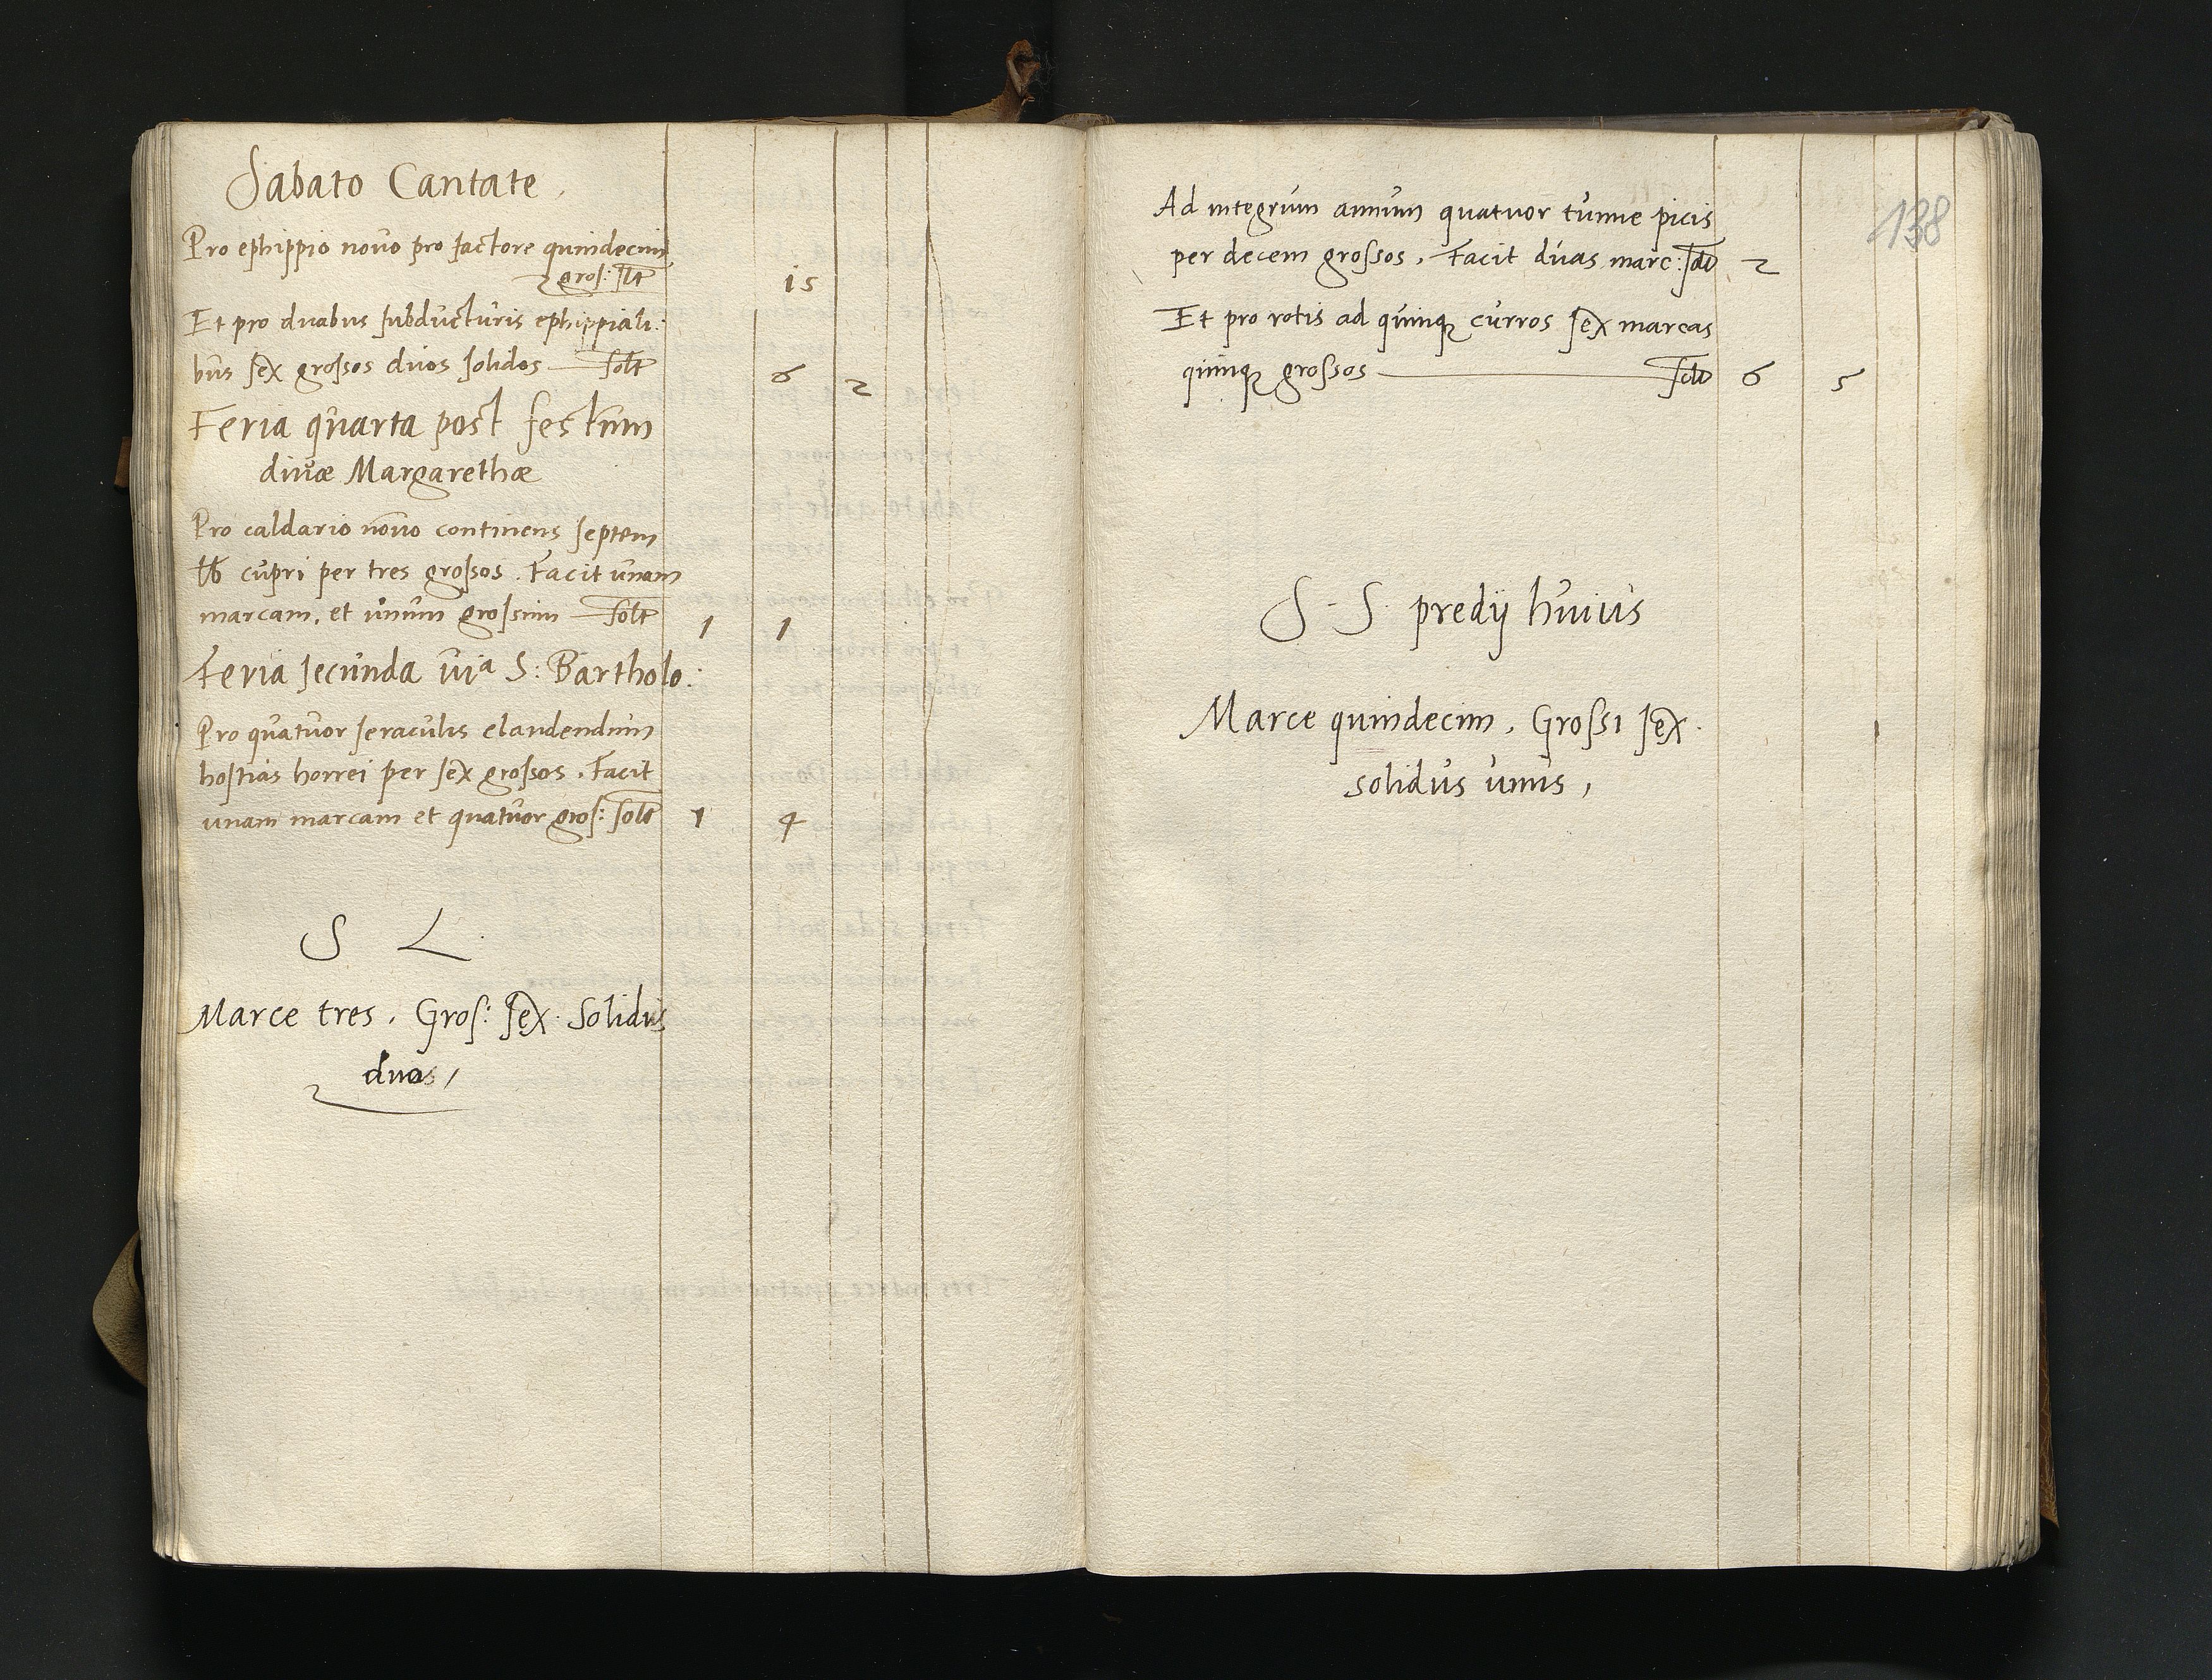 Sabato Cantate.
Pro ephippio novo pro factore quindecim
gros: solt 15
Et pro duabus subducturis ephippiali:
bus sex grossos duos solidos — solt 6 2
Feria quarta post festum
divæ Margarethæ
Pro caldario novo continens septem
lb cupri per tres grossos. Facit unam
marcam, et unum grossum — solt 1 1
Feria secunda via S: Bartholo:
Pro quatuor seraculis claudendum
hostias horrei per sex grossos. Facit
unam marcam et quatuor gros: solt 1 4
S L.
Marce tres. Gros: sex. Solidus
duos,
138
Ad integrum annum quatuor tunne picis
per decem grossos. Facit duas marc: solt 2
Et pro rotis ad quinq curros sex marcas
quinq grossos — solt 6 5
S - S predij huius
Marce quindecim, Grossi sex.
solidus unus,